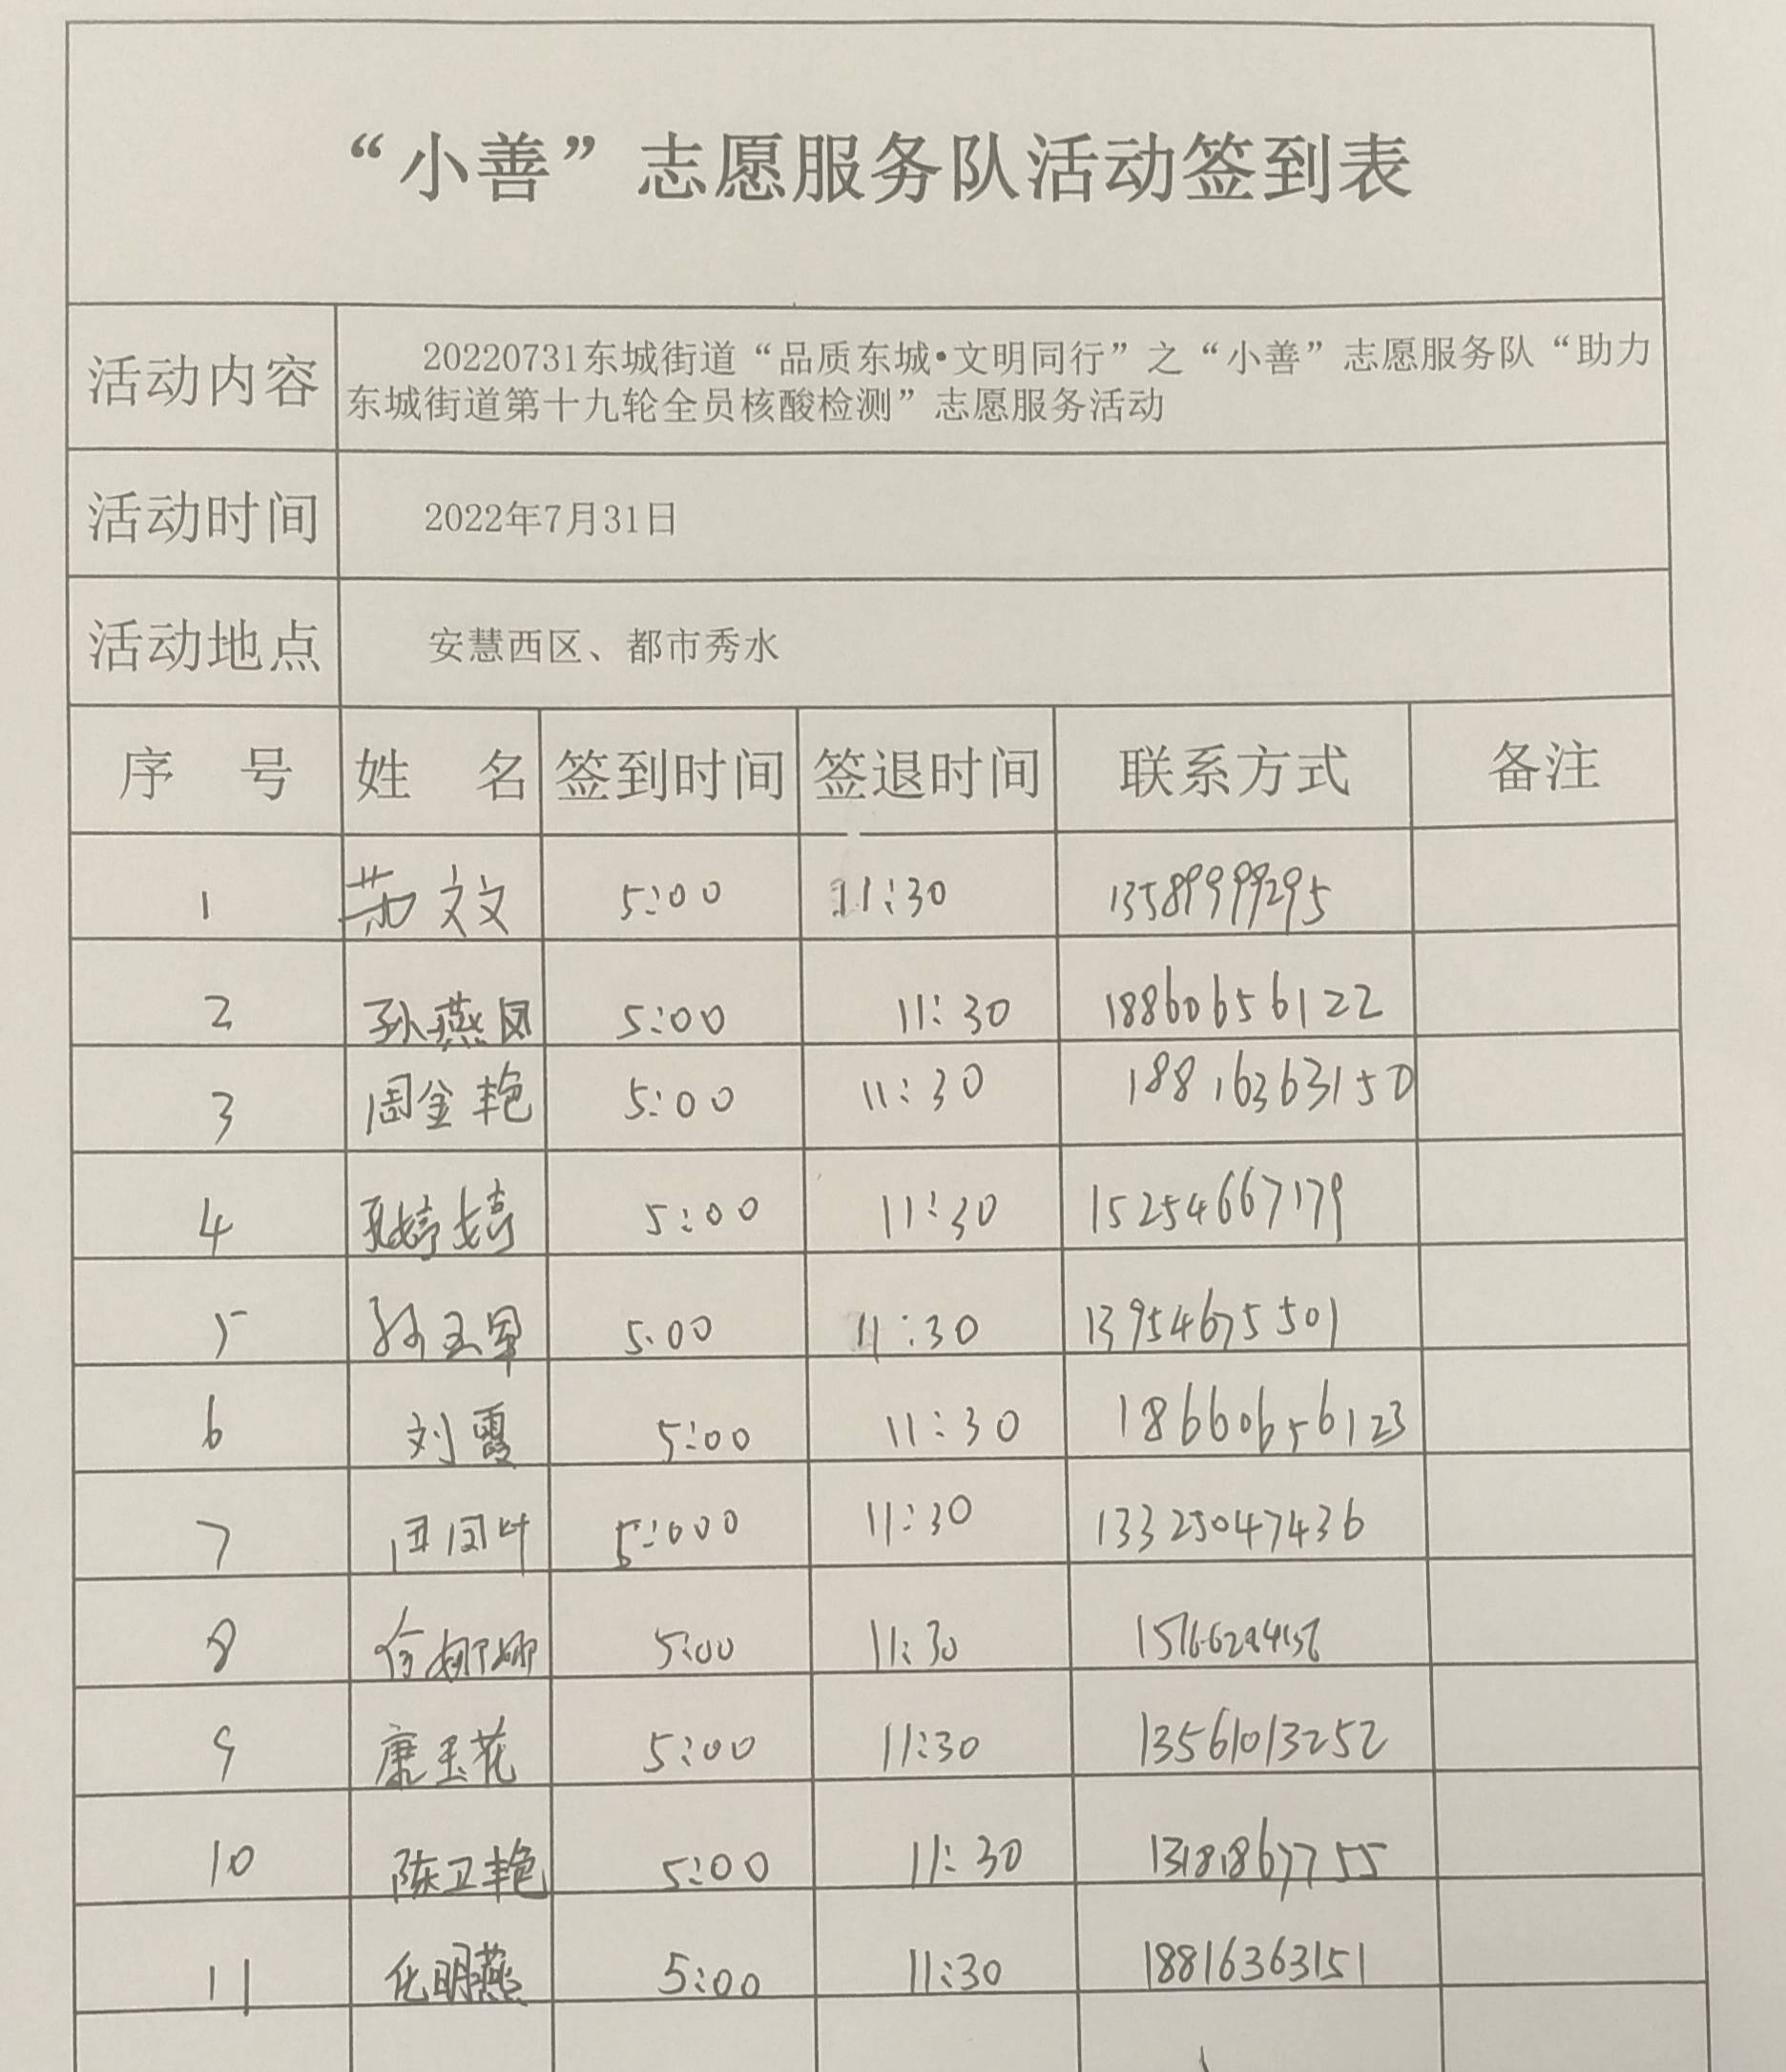 “小善”志愿服务队活动签到表
活动内容 20220731东城街道“品质东城•文明同行”之“小善”志愿服务队“助力
东城街道第十九轮全员核酸检测”志愿服务活动
活动时间 2022年7月31日
活动地点 安慧西区、都市秀水
序 号 姓 名 签到时间 签退时间 联系方式 备注
1 茹文文 5:00 11:30 13589999295
2 孙燕凤 5:00 11:30 18860656122
3 周金艳 5:00 11:30 18816363150
4 婷婷 5:00 11:30 15254667179
5 孙玉军 5:00 11:30 13954675501
6 刘霞 5:00 11:30 18660656123
7 5:000 11:30 13325047436
8 娜娜 5:00 11:30
9 唐玉花 5:00 11:30 13561013252
10 陈卫艳 5:00 11:30 13181867755
11 化明燕 5:00 11:30 18816363151